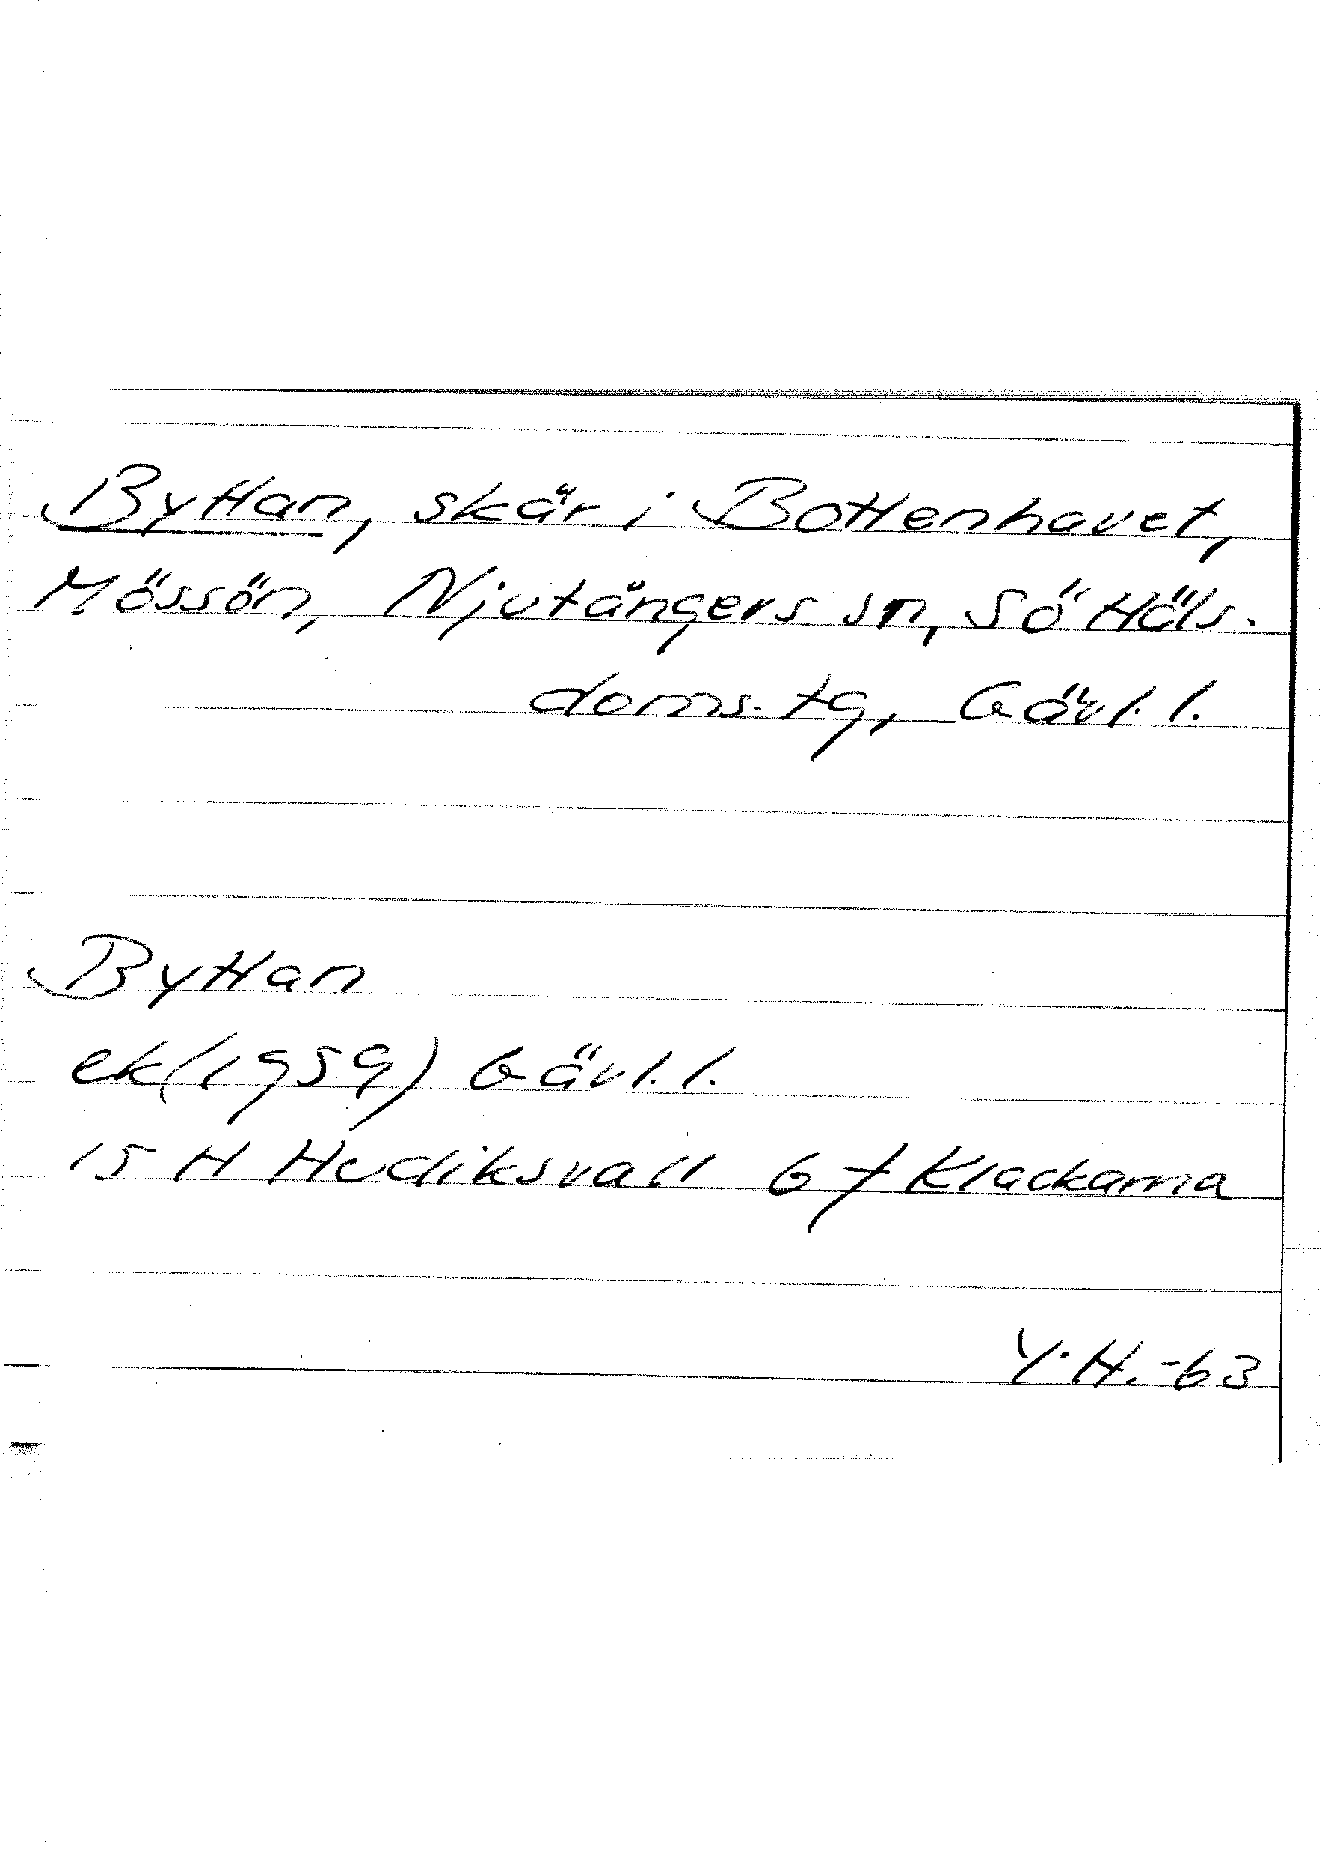 Byttan, skär i Bottenhavet,
Mössön, Njutångers sn, Sö Häls.
doms. tg, Gävl. l.
Byttan
ek (1959) Gävl. l.
15 H Hudiksvall 6 f Klackarna
Y. H. -63